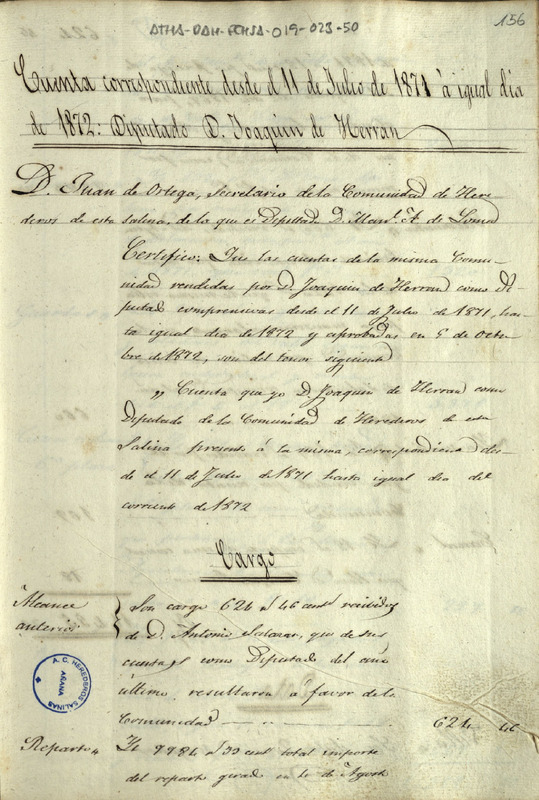 ATHA-DAH-FCHSA-019-023-50
156
Cuenta correspondiente desde el 11 de Julio de 1871 à igual dia
de 1872: Diputado D. Joaquin de Herran
D. Juan de Ortega, Secretario de la Comunidad de Here-
deros de esta Salina, de la que es Diputado D. Man.l A. de
Certifico: Que las cuentas de la misma Comu-
nidad rendidas por D. Joaquin de Herran como Di-
putado comprensivas desde el 11 de Julio de 1871, has-
ta igual dia de 1872 y aprobadas en 5 de Octu-
bre de 1872, son del tenor siguiente
„ Cuenta que yo D. Joaquin de Herran como
Diputado de la Comunidad de Herederos de esta
Salina presento á la misma, correspondiente des-
de el 11 de Julio de 1871 hasta igual dia del
corriente de 1872
Cargo
Alcance
anterior
Son cargo 624 rs 46 cents recividos
de D. Antonio Salazar, que de sus
cuentas como Diputado del año
último resultaron á favor de la
Comunidad 624 46
A. C. HEREDEROS SALINAS AÑANA
Reparto
7784 rs 99 cent total importe
del reparto girado en de Agosto